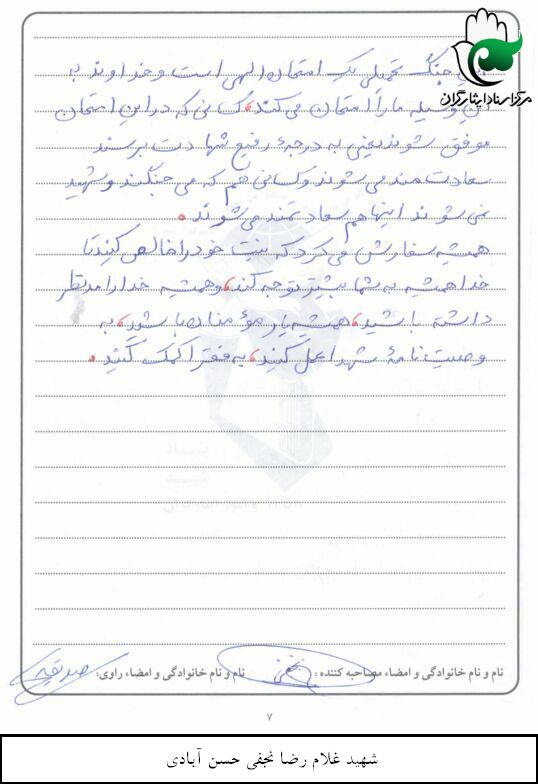 مرکز اسناد ایثارگران
جنگ تحمیلی یک امتحان الهی است و خداوند به
این وسیله ما را امتحان می کند، کسانی که در این امتحان
موفق شوند یعنی به درجهٔ رفیع شهادت برسند
سعادت مند می شوند و کسانی هم که می جنگند و شهید
نمی شوند اینها هم سعادتمند می شوند.
همیشه سفارش می کرد که نیت خود را خالص کنید تا
خدا همیشه به شما بیشتر توجه کند، و همیشه خدا را مد نظر
داشته باشید، همیشه یار مؤمنان باشید، به
وصیت نامهٔ شهدا عمل کنید، به فقرا کمک کنید.
نام و نام خانوادگی و امضاء مصاحبه کننده: نجفی
نام و نام خانوادگی و امضاء راوی:
۷
شهید غلام رضا نجفی حسن آبادی